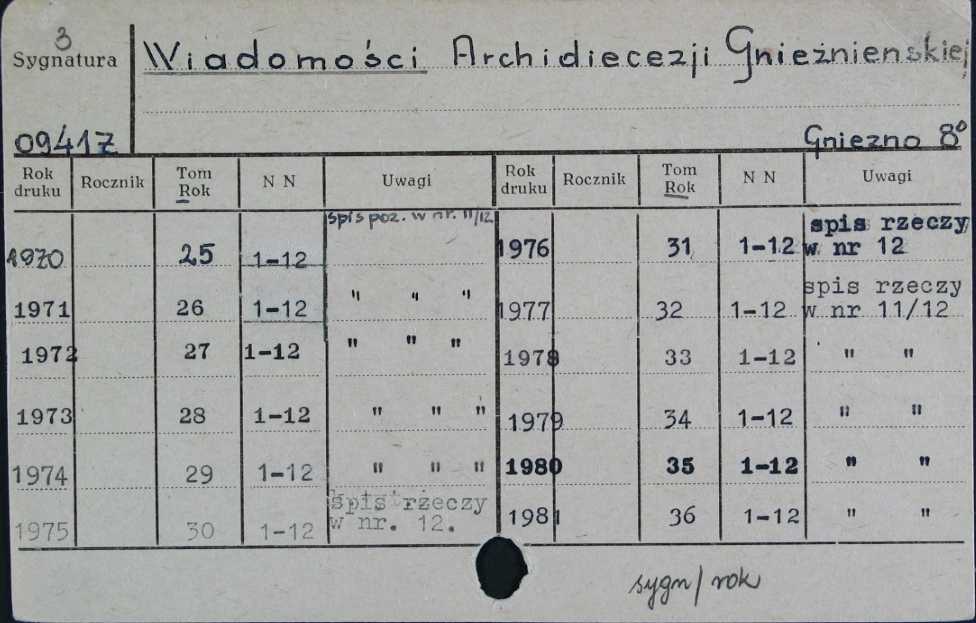 3
Sygnatura Wiadomości Archidiecezji Gnieźnienskiej
09417 Gniezno 8°
Rok druku Rocznik Tom Rok N N Uwagi Rok druku Rocznik Tom Rok N N Uwagi
1970 25 1-12 spis poz. w nr. 11/12 1976 31 1-12 spis rzeczy w nr 12
1971 26 1-12 " " " 1977 32 1-12 spis rzeczy w nr 11/12
1972 27 1-12 " " " 1978 33 1-12 " "
1973 28 1-12 " " " 1979 34 1-12 " "
1974 29 1-12 " " " 1980 35 1-12 " "
1975 30 1-12 spis rzeczy w nr. 12. 1981 36 1-12 " "
sygn/rok